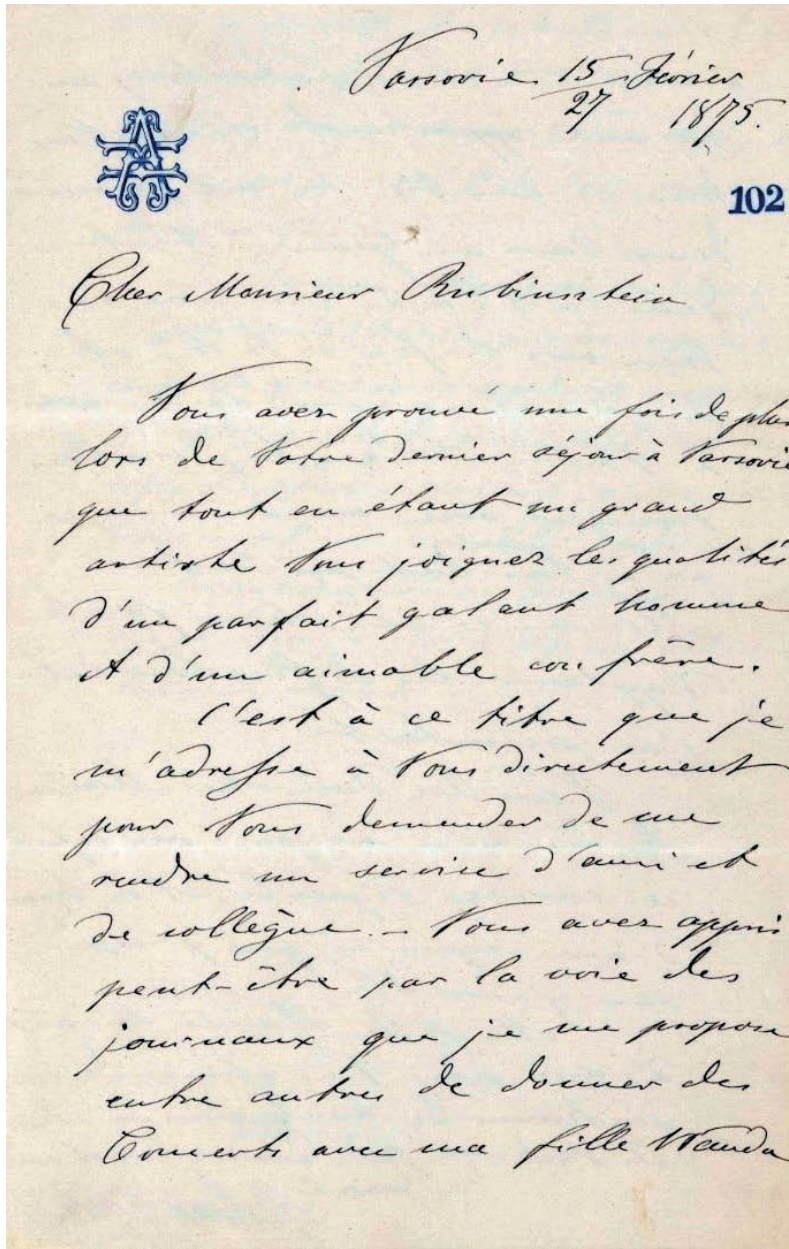 Varsovie 15/27 Février
1875.
102
Cher Monsieur Rubinstein
Vous avez prouvé une fois de plus
lors de Votre dernier séjour à Varsovie
que tout en étant un grand
artiste Vous joignez les qualités
d'un parfait galant homme
et d'un aimable confrère.
C'est à ce titre que je
m'adresse à Vous directement
pour Vous demander de me
rendre un service d'ami et
de collègue. – Vous avez appris
peut-être par la voie des
journaux que je me propose
entre autres de donner des
Concerts avec ma fille Wanda